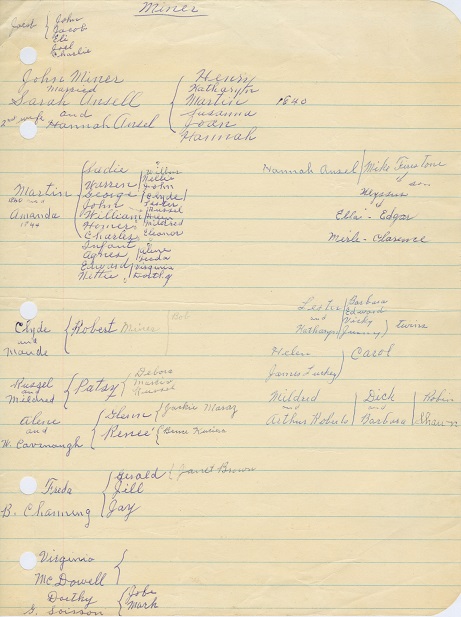 Miner
John
Jacob
Eli
Joel
Charlie
John Miner
married
Sarah Ansell
and
2nd wife Hannah Ansel
Henry
Katharyn
Martin 1840
Susanna
Joan
Hannah
Martin
and
Amanda
1844
Sadie
Warren
George
John
William
Homer
Charles
Infant
Agnes
Edward
Nettie
Wilbur
Nellie
John
Clyde
Lester
Russel
Helen
Mildred
Eleanor
Alene
Freda
Virginia
Dorthy
Hannah Ansel / Mike Firestone
Elta - Edgar
Merle - Clarence
Clyde
and
Maude
Robert Miner
Bob
Lester
and
Katharyn
Barbara
Edwards
Vicky
Jimmy
twins
Helen
James Luckey
Carol
Russel
and
Mildred
Patsy
Debora
Russel
Mildred
and
Arthur Roberts
Dick
and
Barbara
Robin
Shawn
Alene
and
W. Cavanaugh
Glenn
Jackie
Renee'
Bruce
Freda
B. Channing
Gerald
Janet Brown
Jill
Jay
Virginia
McDowell
Dorthy
G. Soisson
Jobe
Mark